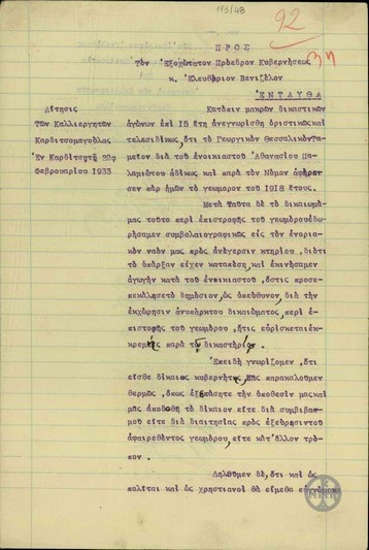 113/48
92
ΠΡΟΣ
Τὸν Ἐξοχώτατον Πρόεδρον Κυβερνήσεως
κ. Ἐλευθέριον Βενιζέλον
ΕΝΤΑΥΘΑ
Αἴτησις
Τῶν Καλλιεργητῶν
Καρδιτσομαγούλας
Ἐν Καρδίτσῃ τῇ 22ᾳ
Φεβρουαρίου 1933
Κατόπιν μακρῶν δικαστικῶν
ἀγώνων ἐπὶ 15 ἔτη ἀνεγνωρίσθη ὁριστικῶς καὶ
τελεσιδίκως, ὅτι τὸ Γεωργικὸν Θεσσαλικὸν Τα-
μεῖον διὰ τοῦ ἐνοικιαστοῦ Ἀθανασίου Πα-
λαμιώτου ἀδίκως καὶ παρὰ τὸν Νόμον ἀφήρε-
σεν παρ ἡμῶν τὸ γεώμορον τοῦ 1918 ἔτους.
Μετὰ Ταῦτα δὲ τὸ δικαίωμά
μας τοῦτο περὶ ἐπιστροφῆς τοῦ γεωμόρου ἐδω-
ρήσαμεν συμβολαιογραφικῶς εἰς τὸν ἐνορια-
κὸν ναόν μας πρὸς ἀνέγερσιν κτηρίου, διότι
τὸ ὑπάρξαν εἶχεν καταπέσῃ, καὶ ἐκινήσαμεν
ἀγωγὴν κατὰ τοῦ ἐνοικιαστοῦ, ὅστις προσε-
πεκάλεσε τὸ δημόσιον, ὡς ὑπεύθυνον, διὰ τὴν
ἐκχώρησιν ἀνυπάρκτου δικαιώματος, περὶ ἐ-
πιστοφῆς τοῦ γεωμόρου, ἥτις εὑρίσκεται ἐκ-
κρεμὴς παρὰ τῷ δικαστηρίῳ.
Ἐπειδὴ γνωρίζομεν, ὅτι
εἶσθε δίκαιος κυβερνήτης, Σᾶς παρακαλοῦμεν
θερμῶς, ὅπως ἐξετάσητε τὴν ὑπόθεσίν μας καὶ
μᾶς ἀποδοθῇ τὸ δίκαιον εἴτε διὰ συμβιβα-
σμοῦ εἴτε διὰ διαιτησίας πρὸς ἐξεύρεσιν τοῦ
ἀφαιρεθέντος γεωμόρου, εἴτε κατ' ἄλλον τρό-
πον.
Δηλοῦμεν δὲ, ὅτι καὶ ὡς
πολῖται καὶ ὡς χρηστιανοὶ θὰ εἴμεθα εὐγνώμονες